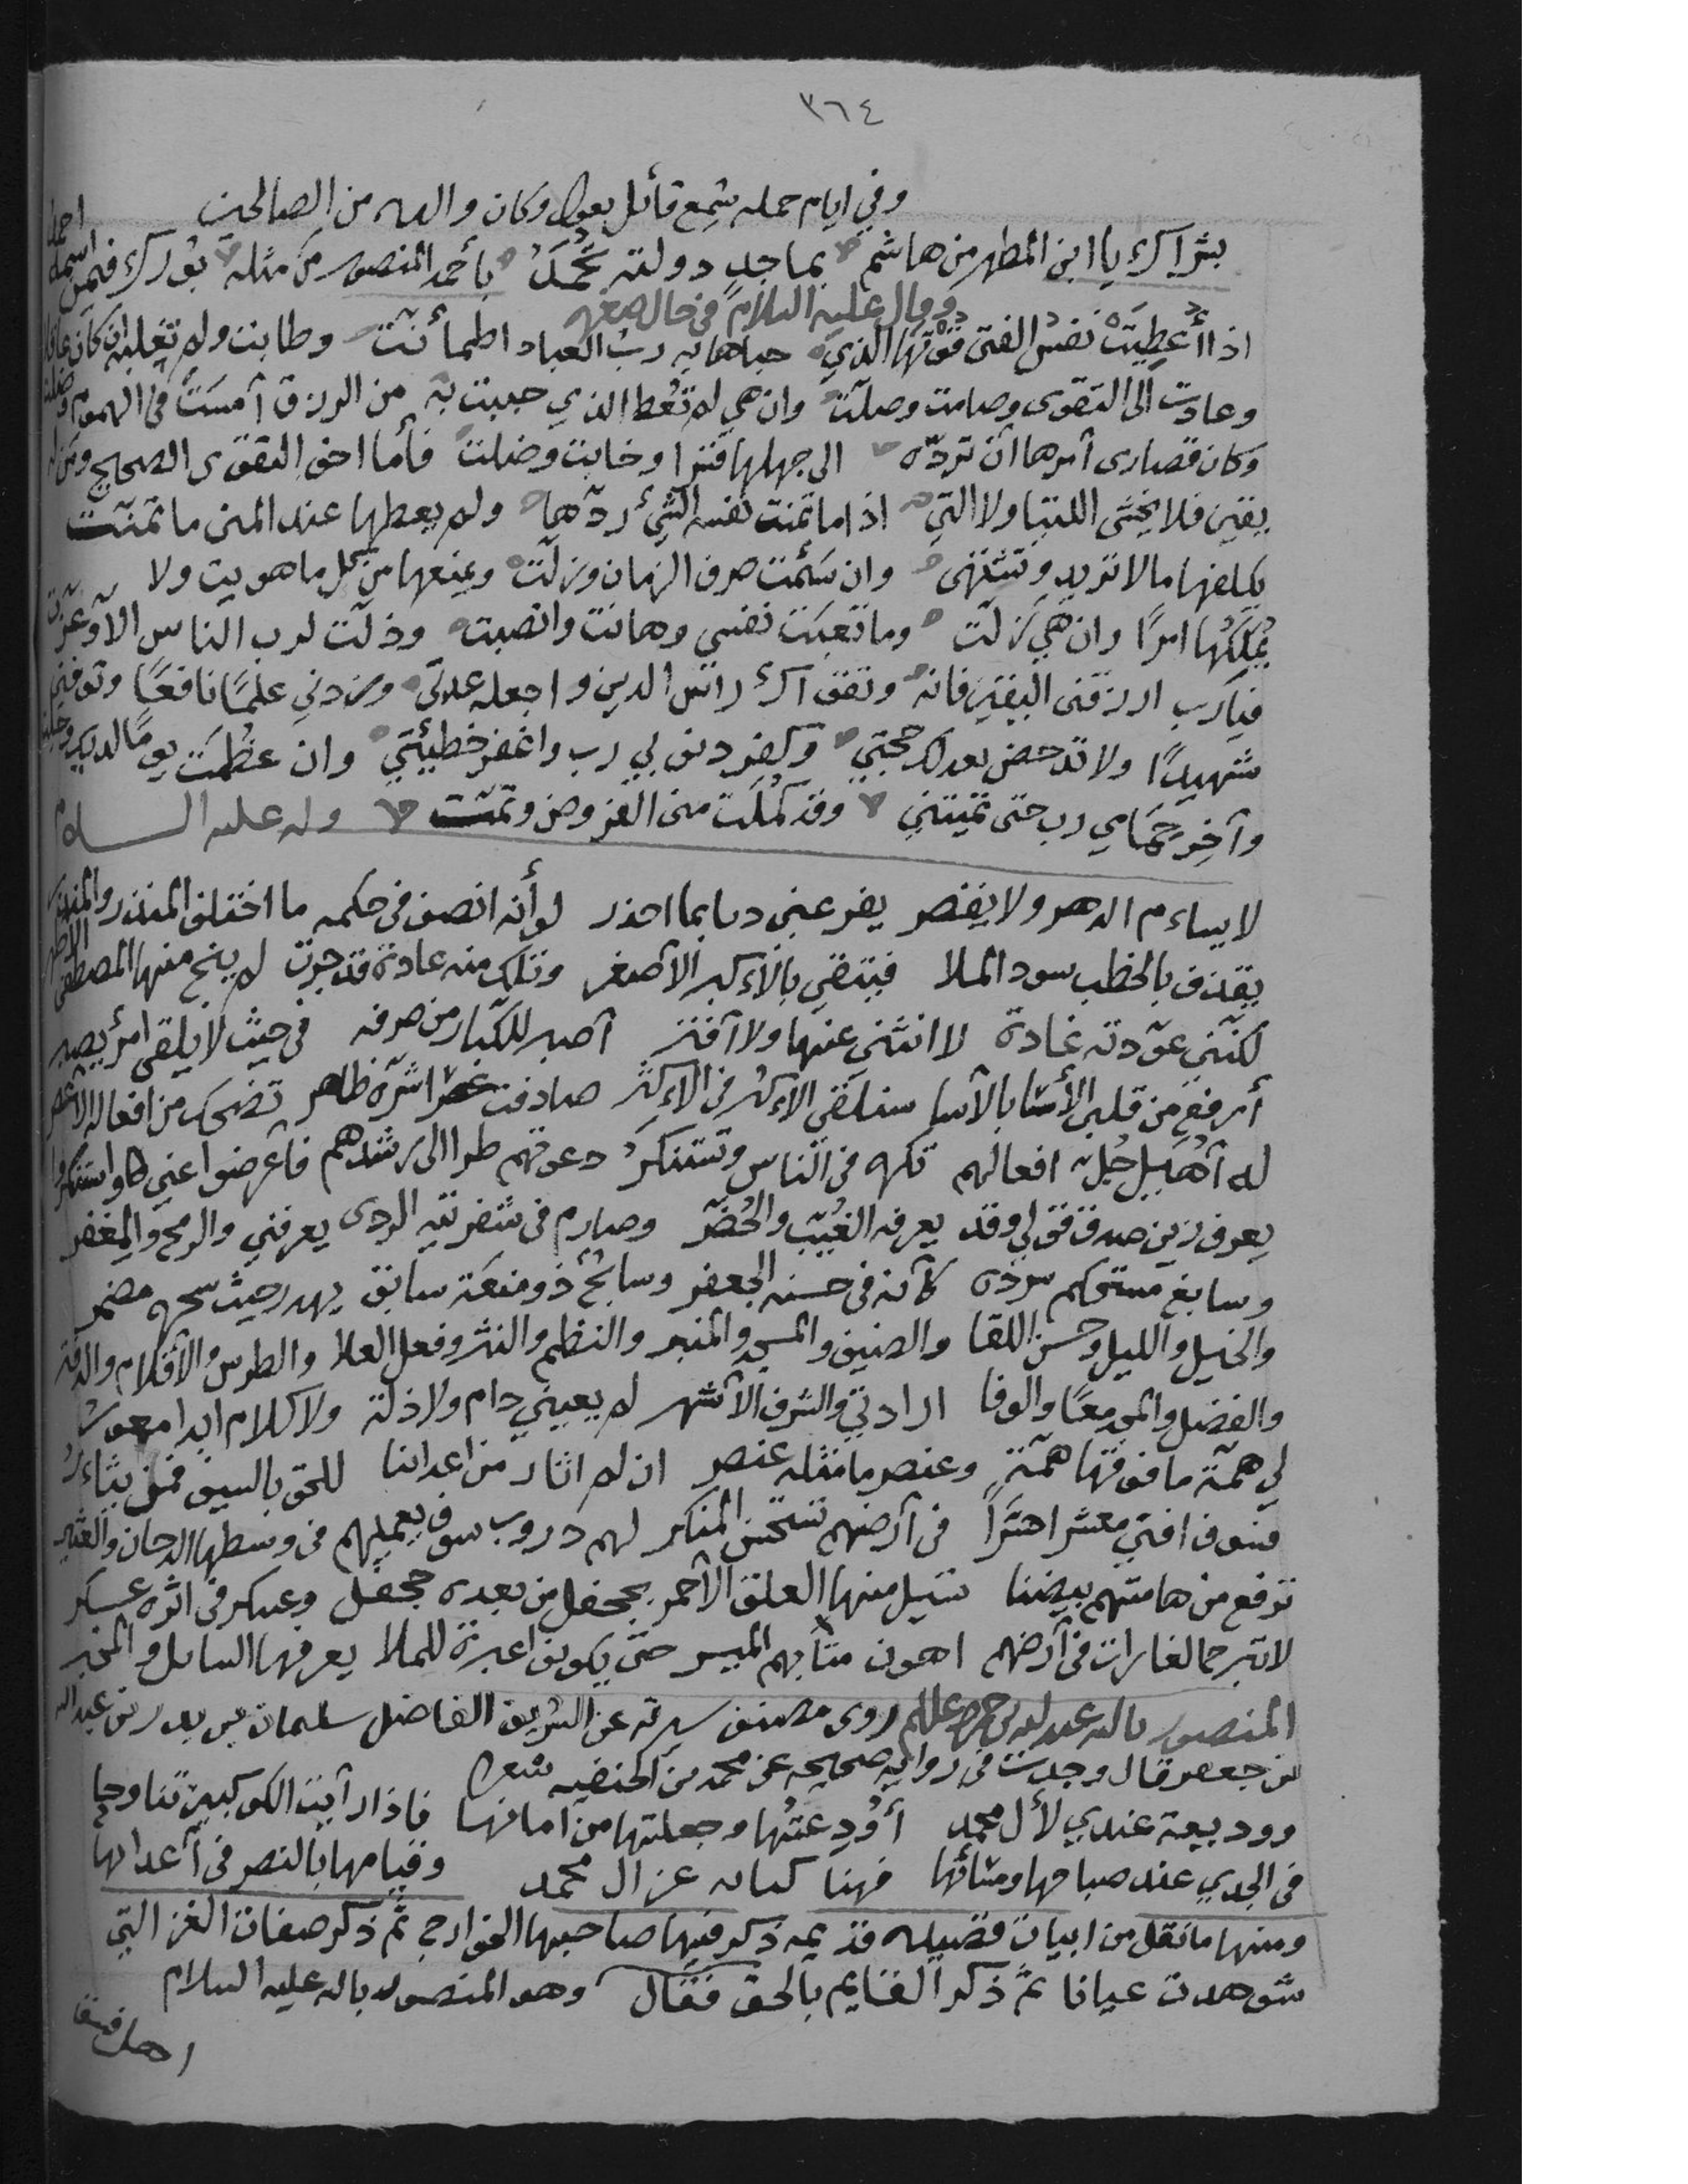 ٣٦٤
وفي ايام حمله سمع قائل يقول وكان والده من الصالحين
بشراك يا ابن المطهر من هاشم بماجد دولته تحمد بأحمد المنصور من مثله بورك فيمن اسمه احمد
وقال عليه السلام في حال صغره
اذا أعطيت نفس الفتى قوتها الذي حباها به رب العباد اطمأنت وطابت ولم تغلبه ان كان عاقلا
وعادت الى التقوى وصامت وصلت وان هي لم تعط الذي حببت به من الرزق أمست في الهموم
وكان قصارى أمرها ان ترده الى جهلها قسرا وخابت وضلت فأما اخو التقوى الصحيح ومن له
يقين فلا يخشى اللتيا ولا التي اذا ما تمنت نفسه الشئ ردها ولم يعطها عند المنى ما تمنت
يكلفها ما لا تريد وتشتهي وان سئمت صرف الزمان وزلت ويمنعها من كل ما هويت ولا
يملكها امرا وان هي زلت وما تعبت نفسي وهانت وانصبت وذلت لرب الناس الا وعزت
فيا رب ارزقني اليقين فانه وتقواك رأس الدين واجعله عدتي وزدني علما نافعا وتوفني
شهيدا ولا تدحض بعدلك حجتي وكفر ذنوبي رب واغفر خطيئتي وان عظمت يوما لديك وجلت
وآخر حمامي رب حتى تميتني وقد كملت مني الفروض وتمت وله عليه السلام
لا يسأم الدهر ولا يقصر يفزعني دأبا بما احذر لو أنه انصف في حكمه ما اختلف المقدر
يقذف بالخطب سود الملا فيتقي بالأكبر الأصغر وتلك منه عادة قد جرت لم ينج منها المصطفى الاطهر
لكنني عودته عادة لا انثني عنها ولا أفتر أصبر للكبار من صرفه في حيث لا يلقى امرئ يصبر
أرفع من قلبي الأسا بالأسا سنلتقي الأكثر في الأكثر صادفت شره ظاهر تضحك من افعاله الأعصر
له أهيل جل افعالهم تكره في الناس وتستنكر دعوتهم طرا الى رشدهم فأعرضوا عني واستنكروا
يعرفني صدق قولي وقد يعرفه الغيب والحضر وصارم في شفرتيه الردى يعرفني والرمح والمغفر
وسابغ مستحكم سرده كأنه في حسنه الجعفر وسابح ذو منعة سابق مضمر
والخيل والليل وحسن اللقا والضيف والمنبر والنظم والنثر وفعل العلا والطرس والأقلام والدفتر
والفضل والمجد معا والوفا ارادتي والشرف الأشهر لم يعبني ذام ولا ذلة ولا كلام ابدا
لي همة ما فوقها همة وعنصر ما مثله عنصر ان لم اثار من اعدائنا للحق بالسيف فمن يثأر
فسوف افني معشرا في أرضهم تستحسن المنكر لهم دروب سوف يعميهم في وسطها الدخان والعثير
نرفع من هامتهم بيضنا تسيل منها العلق الأحمر بجحفل من بعده جحفل وعسكر في اثره عسكر
لا تبرح الغارات في أرضهم اهون منا بهم الميسر حتى يكونوا عبرة للملا يعرفها السائل والمخبر
المنصور بالله عبد الله بن حمزة عليلم روى مصنف سيرته عن الشريف الفاضل سليمان بن بدر بن عبد الله
بن جعفر قال وجدت في رواية صحيحه عن محمد بن الحنفيه شعرا
ووديعة عندي لأل محمد أودعتها وجعلتها من امانها فاذا رأيت الكوكبين تناوحا
في الجدي عند صباحها ومسائها فهنا عز ال محمد وقيامها بالنصر في أعدائها
ومنها ما نقل من ابيات قصيده قديمه ذكر فيها صاحبها الخوارج ثم ذكر صفات الغز التي
شوهدت عيانا ثم ذكر القايم بالحق فقال وهو المنصور بالله عليه السلام